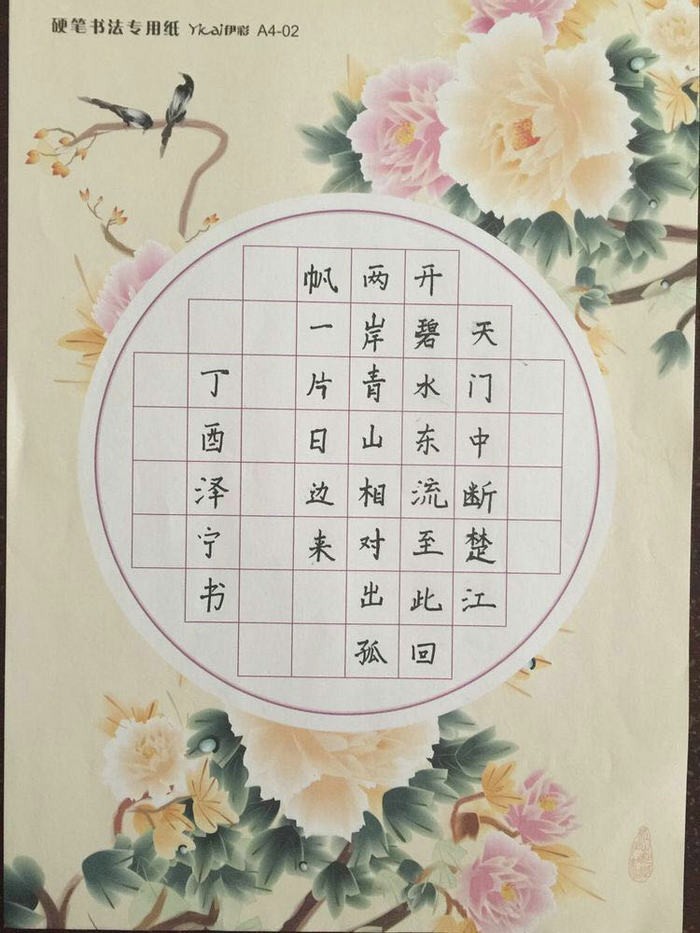 硬笔书法专用纸 Yicai伊彩 A4-02
天门中断楚江
开碧水东流至此回
两岸青山相对出孤
帆一片日边来
丁酉泽宁书